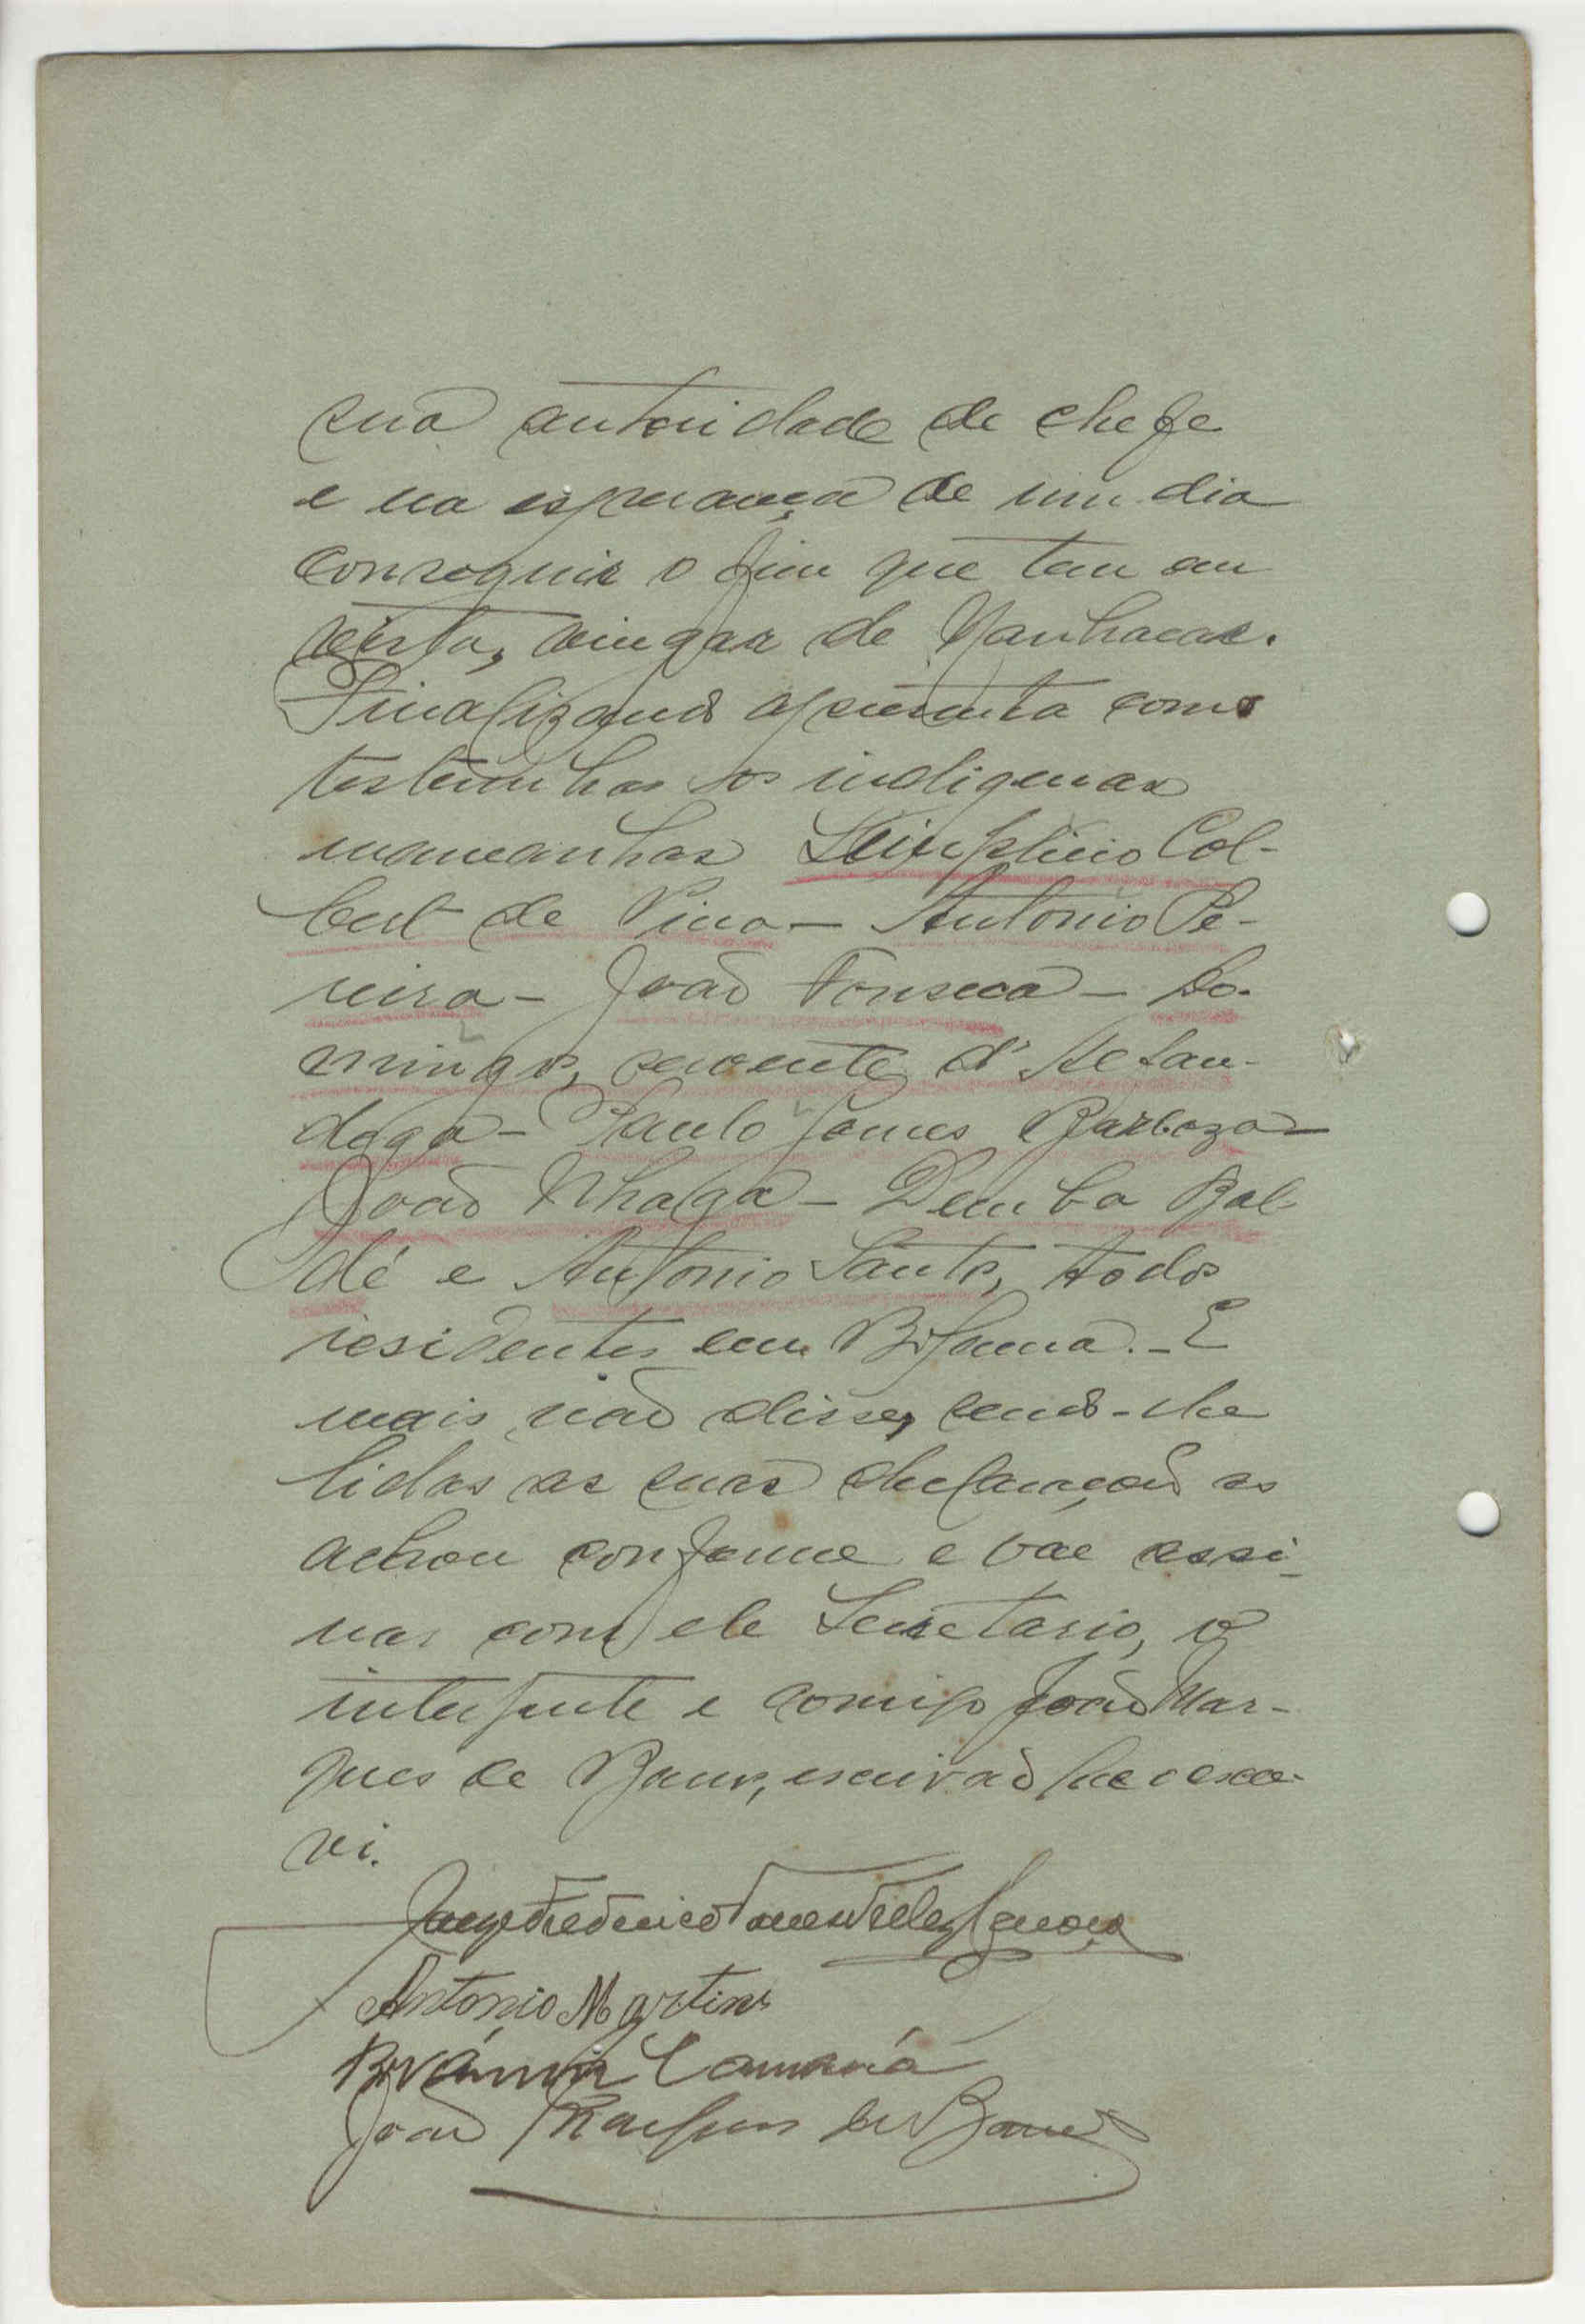 sua autoridade de chefe
e na esperança de um dia
conseguir o fim que tem em
vista, vingar de Nanhacae.
Finalizando apresenta como
testemunhas os indigenas
mamanhas Simplicio Col-
bert de Pina - Antonio Pe-
reira - João Fonseca - Do-
mingos, servente d'Alfan-
dega - Paulo Gomes Barboza -
João Nhaga - Demba Bal-
dé e Antonio Santos, todos
residentes em Bissau. - E
mais não disse, sendo-lhe
lidas as suas declarações as
achou conforme e vae assi-
nar com ele Secretario, o
interprete e comigo João Mar-
ques de Barros, escrivão que o escre-
vi.
Frederico
Antonio Martins
Camará
João Marques de Barros